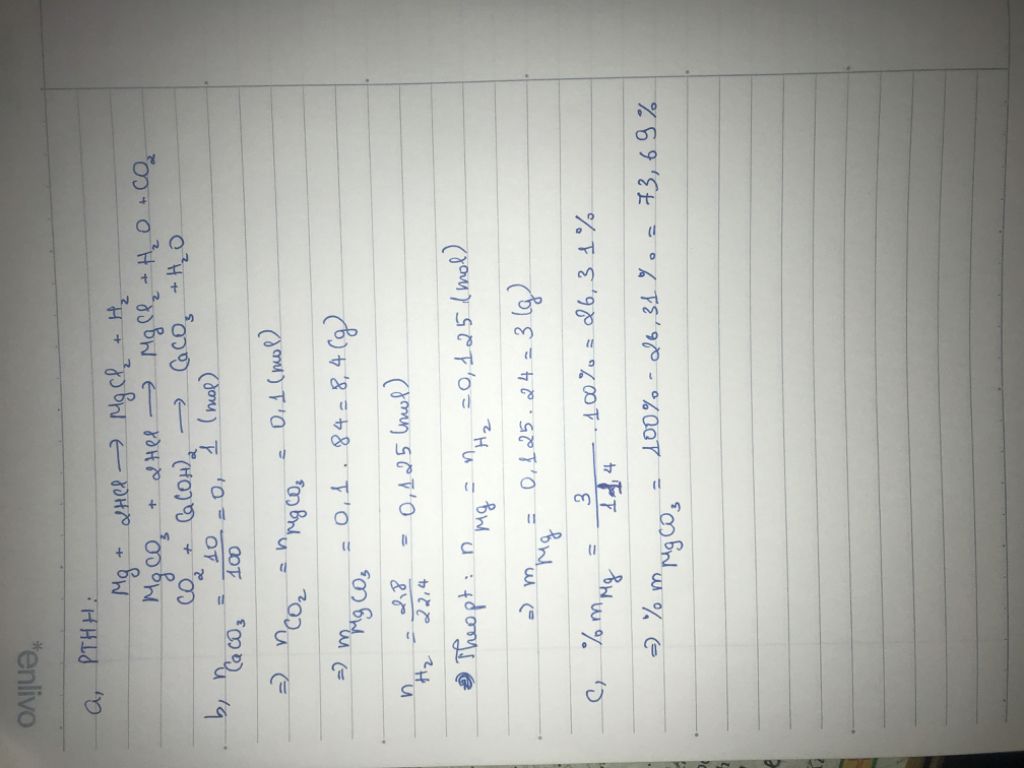 *enlivo
a, PTHH:
Mg + 2HCl → MgCl₂ + H₂
MgCO₃ + 2HCl → MgCl₂ + H₂O + CO₂
CO₂ + Ca(OH)₂ → CaCO₃ + H₂O
b, n CaCO₃ = 10/100 = 0,1 (mol)
=> n CO₂ = n MgCO₃ = 0,1 (mol)
=> m MgCO₃ = 0,1 . 84 = 8,4 (g)
n H₂ = 2,8/22,4 = 0,125 (mol)
Theo pt : n Mg = n H₂ = 0,125 (mol)
=> m Mg = 0,125 . 24 = 3 (g)
c, % m Mg = 3/11,4 . 100% = 26,31%
=> % m MgCO₃ = 100% - 26,31% = 73,69%